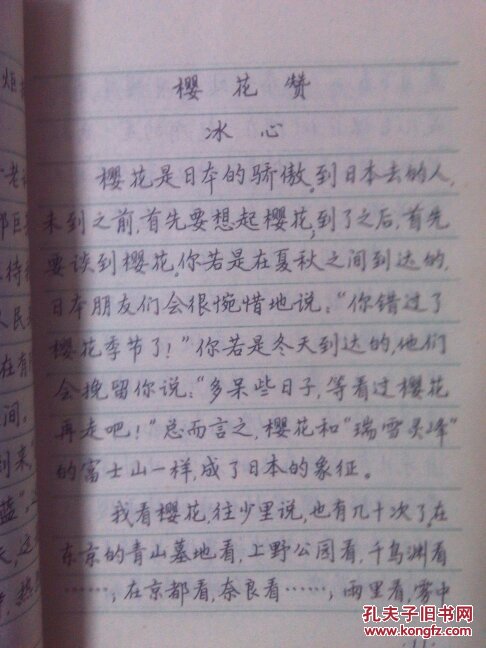 樱花赞
冰心
樱花是日本的骄傲。到日本去的人,
未到之前,首先要想起樱花;到了之后,首先
要谈到樱花。你若是在夏秋之间到达的,
日本朋友们会很惋惜地说:“你错过了
樱花季节了!”你若是冬天到达的,他们
会挽留你说:“多呆些日子,等看过樱花
再走吧!”总而言之,樱花和“瑞雪灵峰”
的富士山一样,成了日本的象征。
我看樱花,往少里说,也有几十次了。在
东京的青山墓地看,上野公园看,千鸟渊看
……;在京都看,奈良看……;雨里看,雾中
孔夫子旧书网
www.kongfz.com